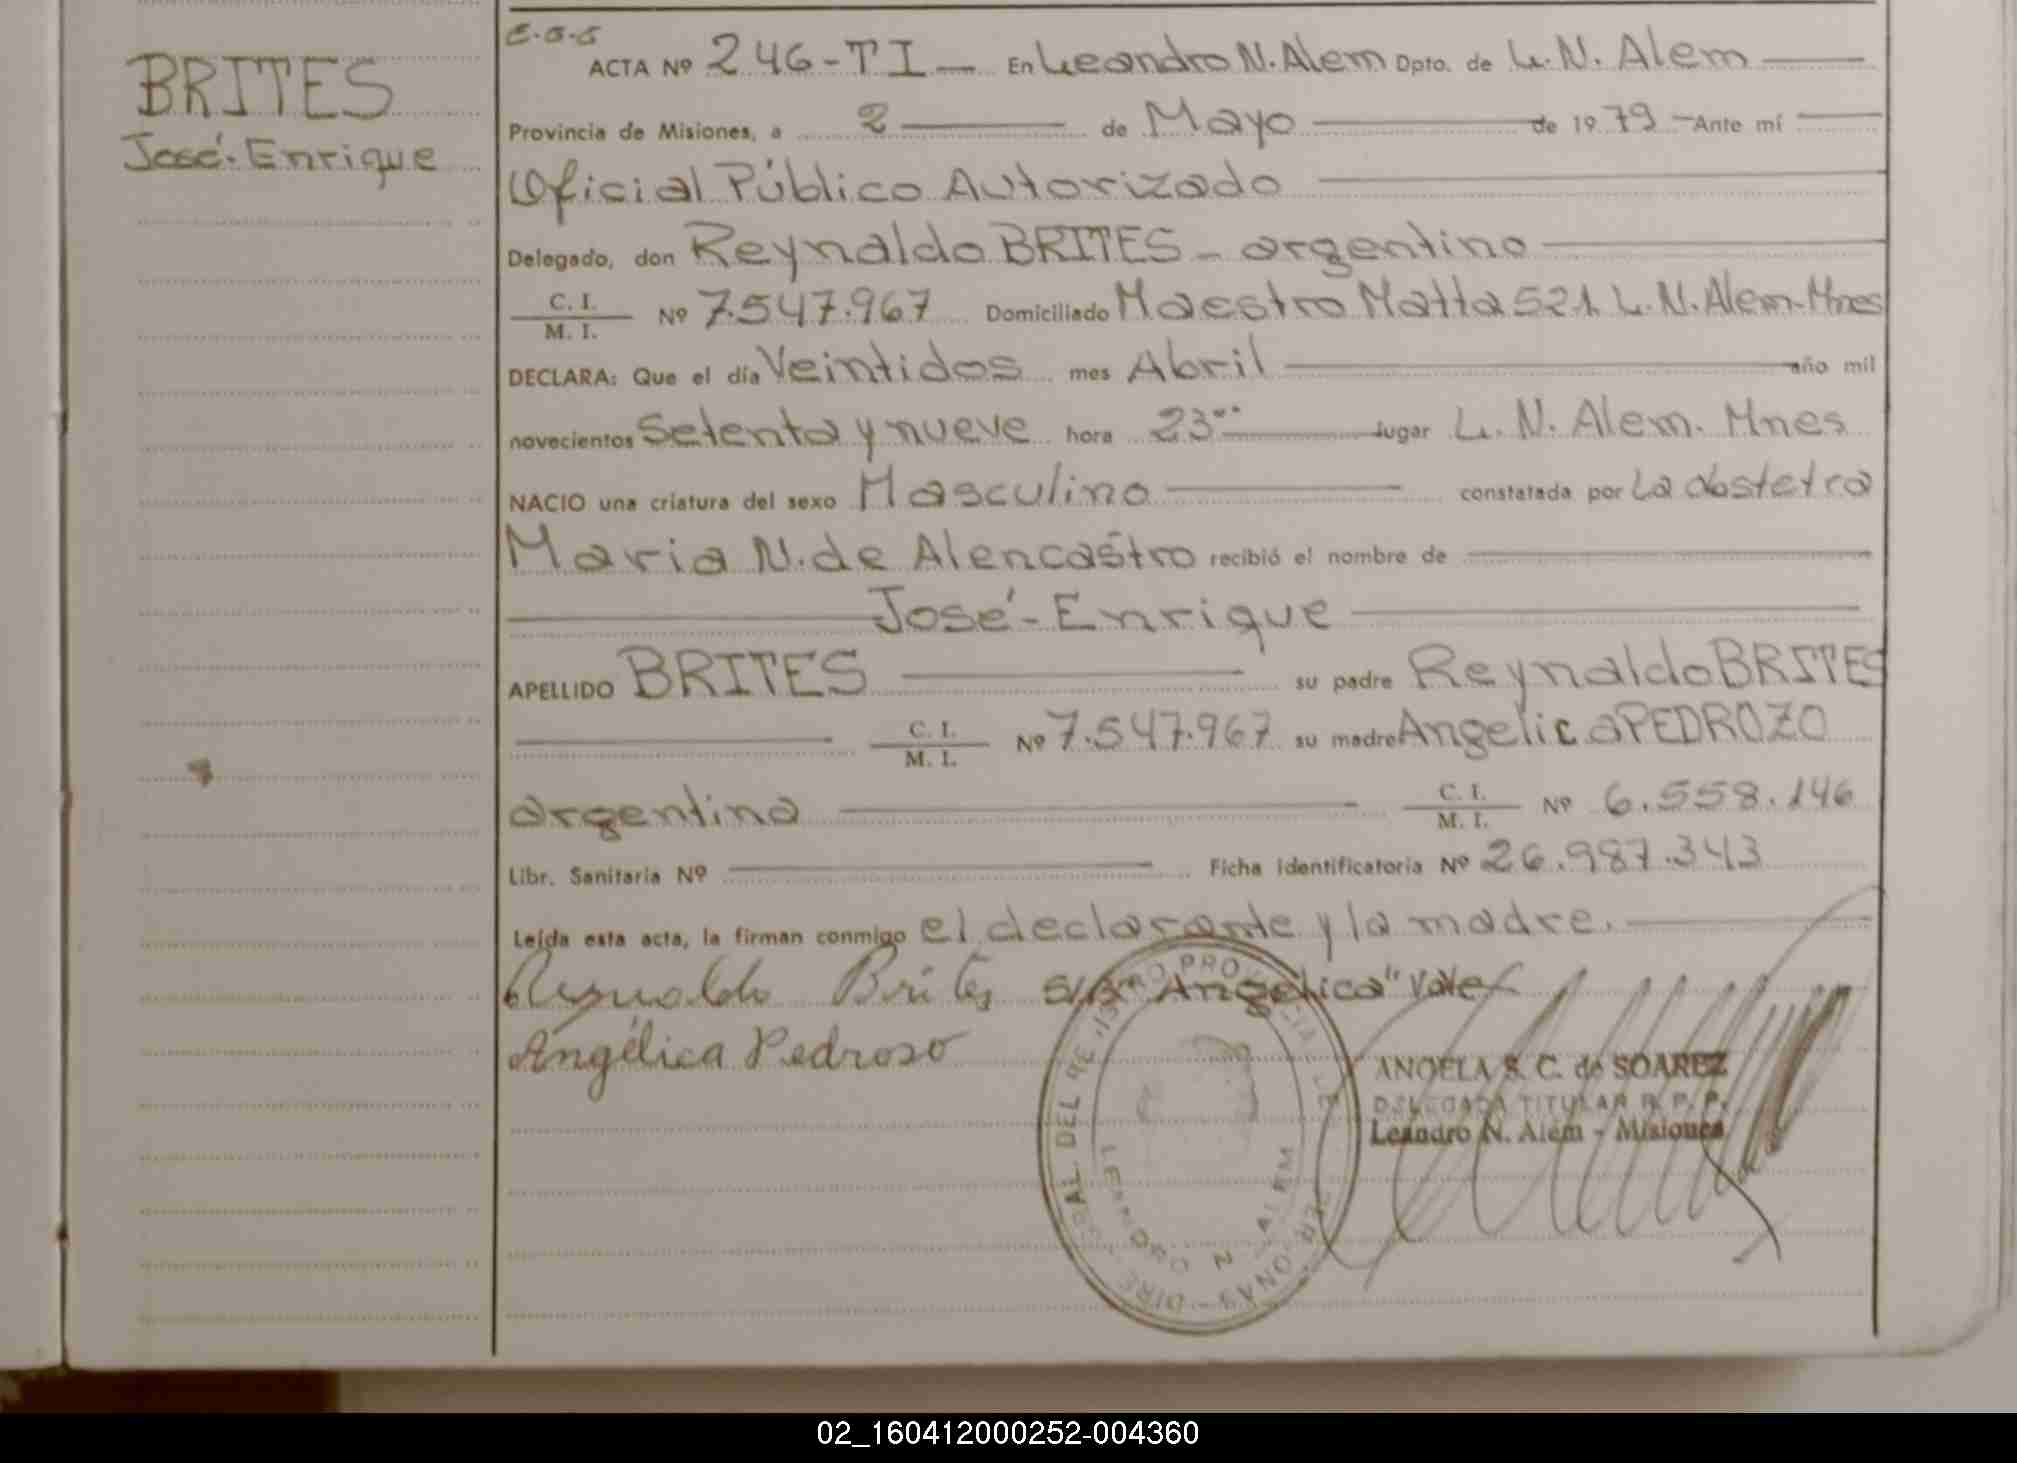 BRITES
José-Enrique
ACTA Nº 246-TI- En Leandro N. Alem Dpto. de L. N. Alem
Provincia de Misiones, a 2 de Mayo de 1979 Ante mí
Oficial Público Autorizado
Delegado, don Reynaldo BRITES - argentino
C. I.
M. I. Nº 7.547.967 Domiciliado Maestro Matta 521 L. N. Alem-Mnes
DECLARA: Que el día Veintidos mes Abril año mil
novecientos Setenta y nueve hora 23°° lugar L. N. Alem. Mnes
NACIO una criatura del sexo Masculino constatada por La obstetra
Maria N. de Alencastro recibió el nombre de
José-Enrique
APELLIDO BRITES su padre Reynaldo BRITES
C. I.
M. I. Nº 7.547.967 su madre Angelica PEDROZO
argentina C. I.
M. I. Nº 6.558.146
Libr. Sanitaria Nº Ficha Identificatoria Nº 26.987.343
Leída esta acta, la firman conmigo el declarante y la madre.
Reynaldo Brites "Angelica" Vale
Angélica Pedroso
ANGELA S. C. de SOAREZ
DELEGADA TITULAR R. P. P.
Leandro N. Alem - Misiones
LEANDRO N. ALEM
02_160412000252-004360